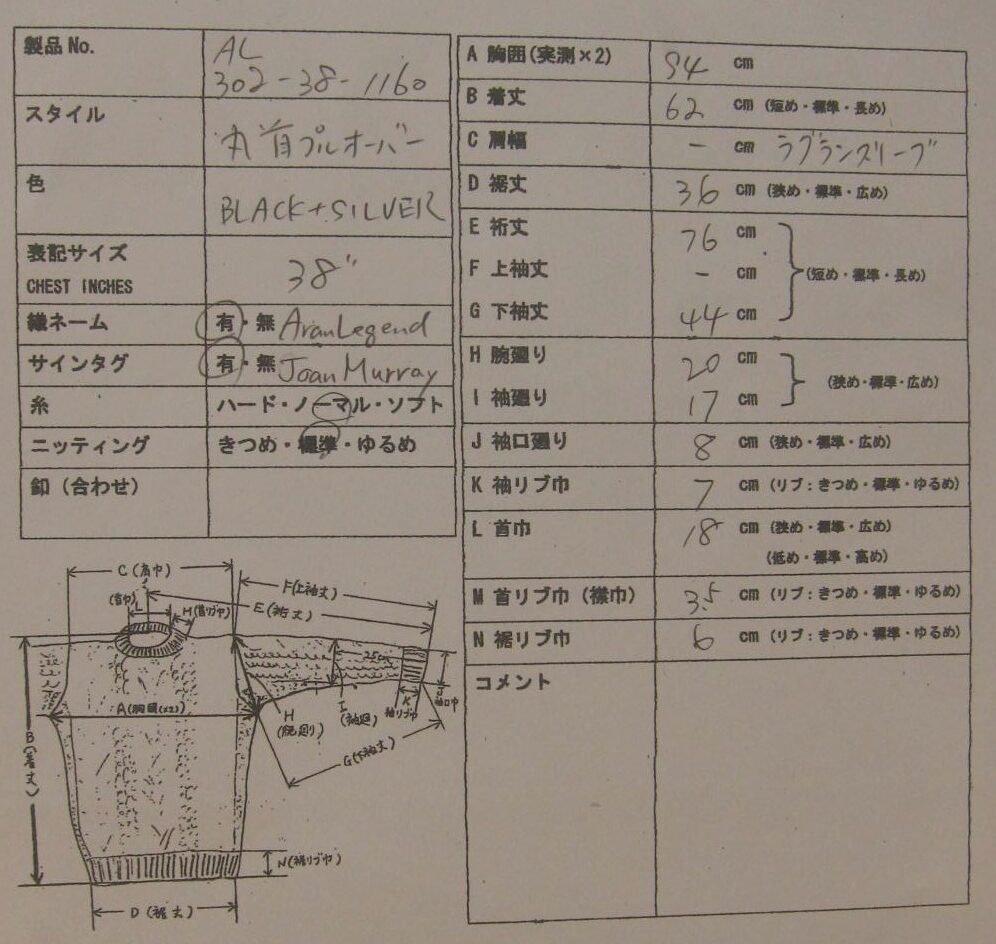 製品No.
AL
302-38-1160
スタイル
丸首プルオーバー
色
BLACK+SILVER
表記サイズ
CHEST INCHES
38"
織ネーム
有・無 AranLegend
サインタグ
有・無 Joan Murray
糸
ハード・ノーマル・ソフト
ニッティング
きつめ・標準・ゆるめ
釦（合わせ）
A 胸囲(実測×2) 94 cm
B 着丈 62 cm (短め・標準・長め)
C 肩幅 - cm ラグランスリーブ
D 裾丈 36 cm (狭め・標準・広め)
E 裄丈 76 cm
F 上袖丈 - cm (短め・標準・長め)
G 下袖丈 44 cm
H 腕廻り 20 cm
(狭め・標準・広め)
I 袖廻り 17 cm
J 袖口廻り 8 cm (狭め・標準・広め)
K 袖リブ巾 7 cm (リブ：きつめ・標準・ゆるめ)
L 首巾 18 cm (狭め・標準・広め)
(低め・標準・高め)
M 首リブ巾（襟巾） 3.5 cm (リブ：きつめ・標準・ゆるめ)
N 裾リブ巾 6 cm (リブ：きつめ・標準・ゆるめ)
コメント
C(肩巾)
F(上袖丈)
E(裄丈)
(首巾)
L
M(首リブ巾)
A(胸囲(×2))
B(着丈)
H
(腕廻り)
I
(袖廻)
K
袖リブ巾
J
袖口巾
G(下袖丈)
N(裾リブ巾)
D(裾丈)